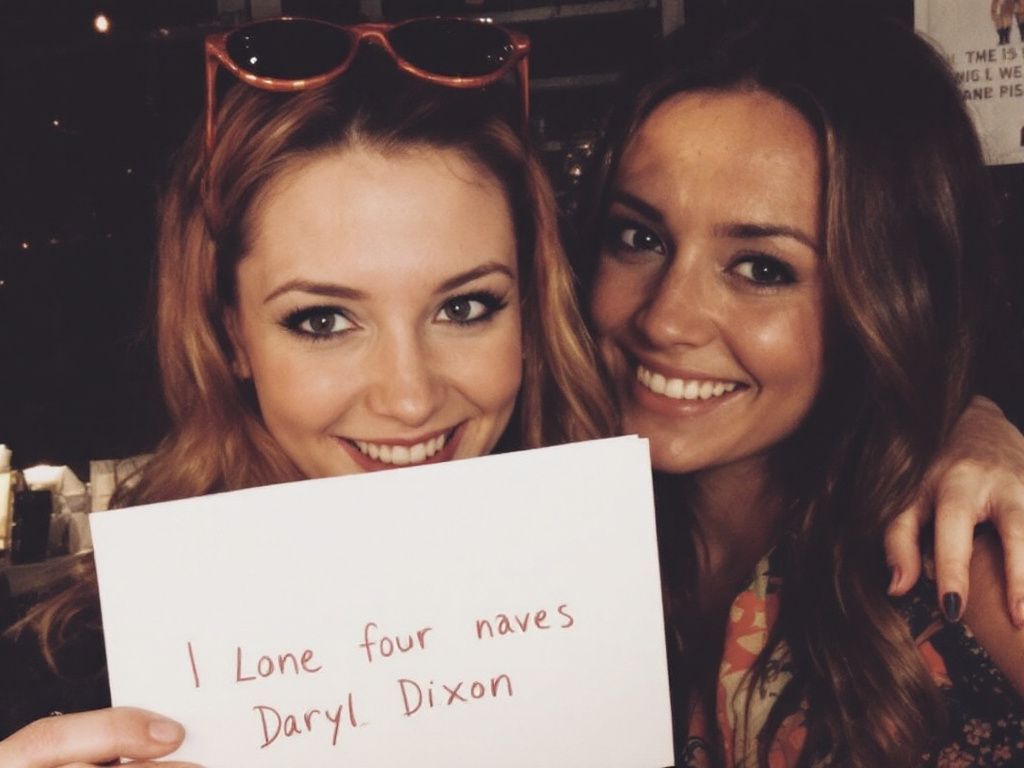 I Lone four naves
Daryl Dixon
TME IS
WE
PIS